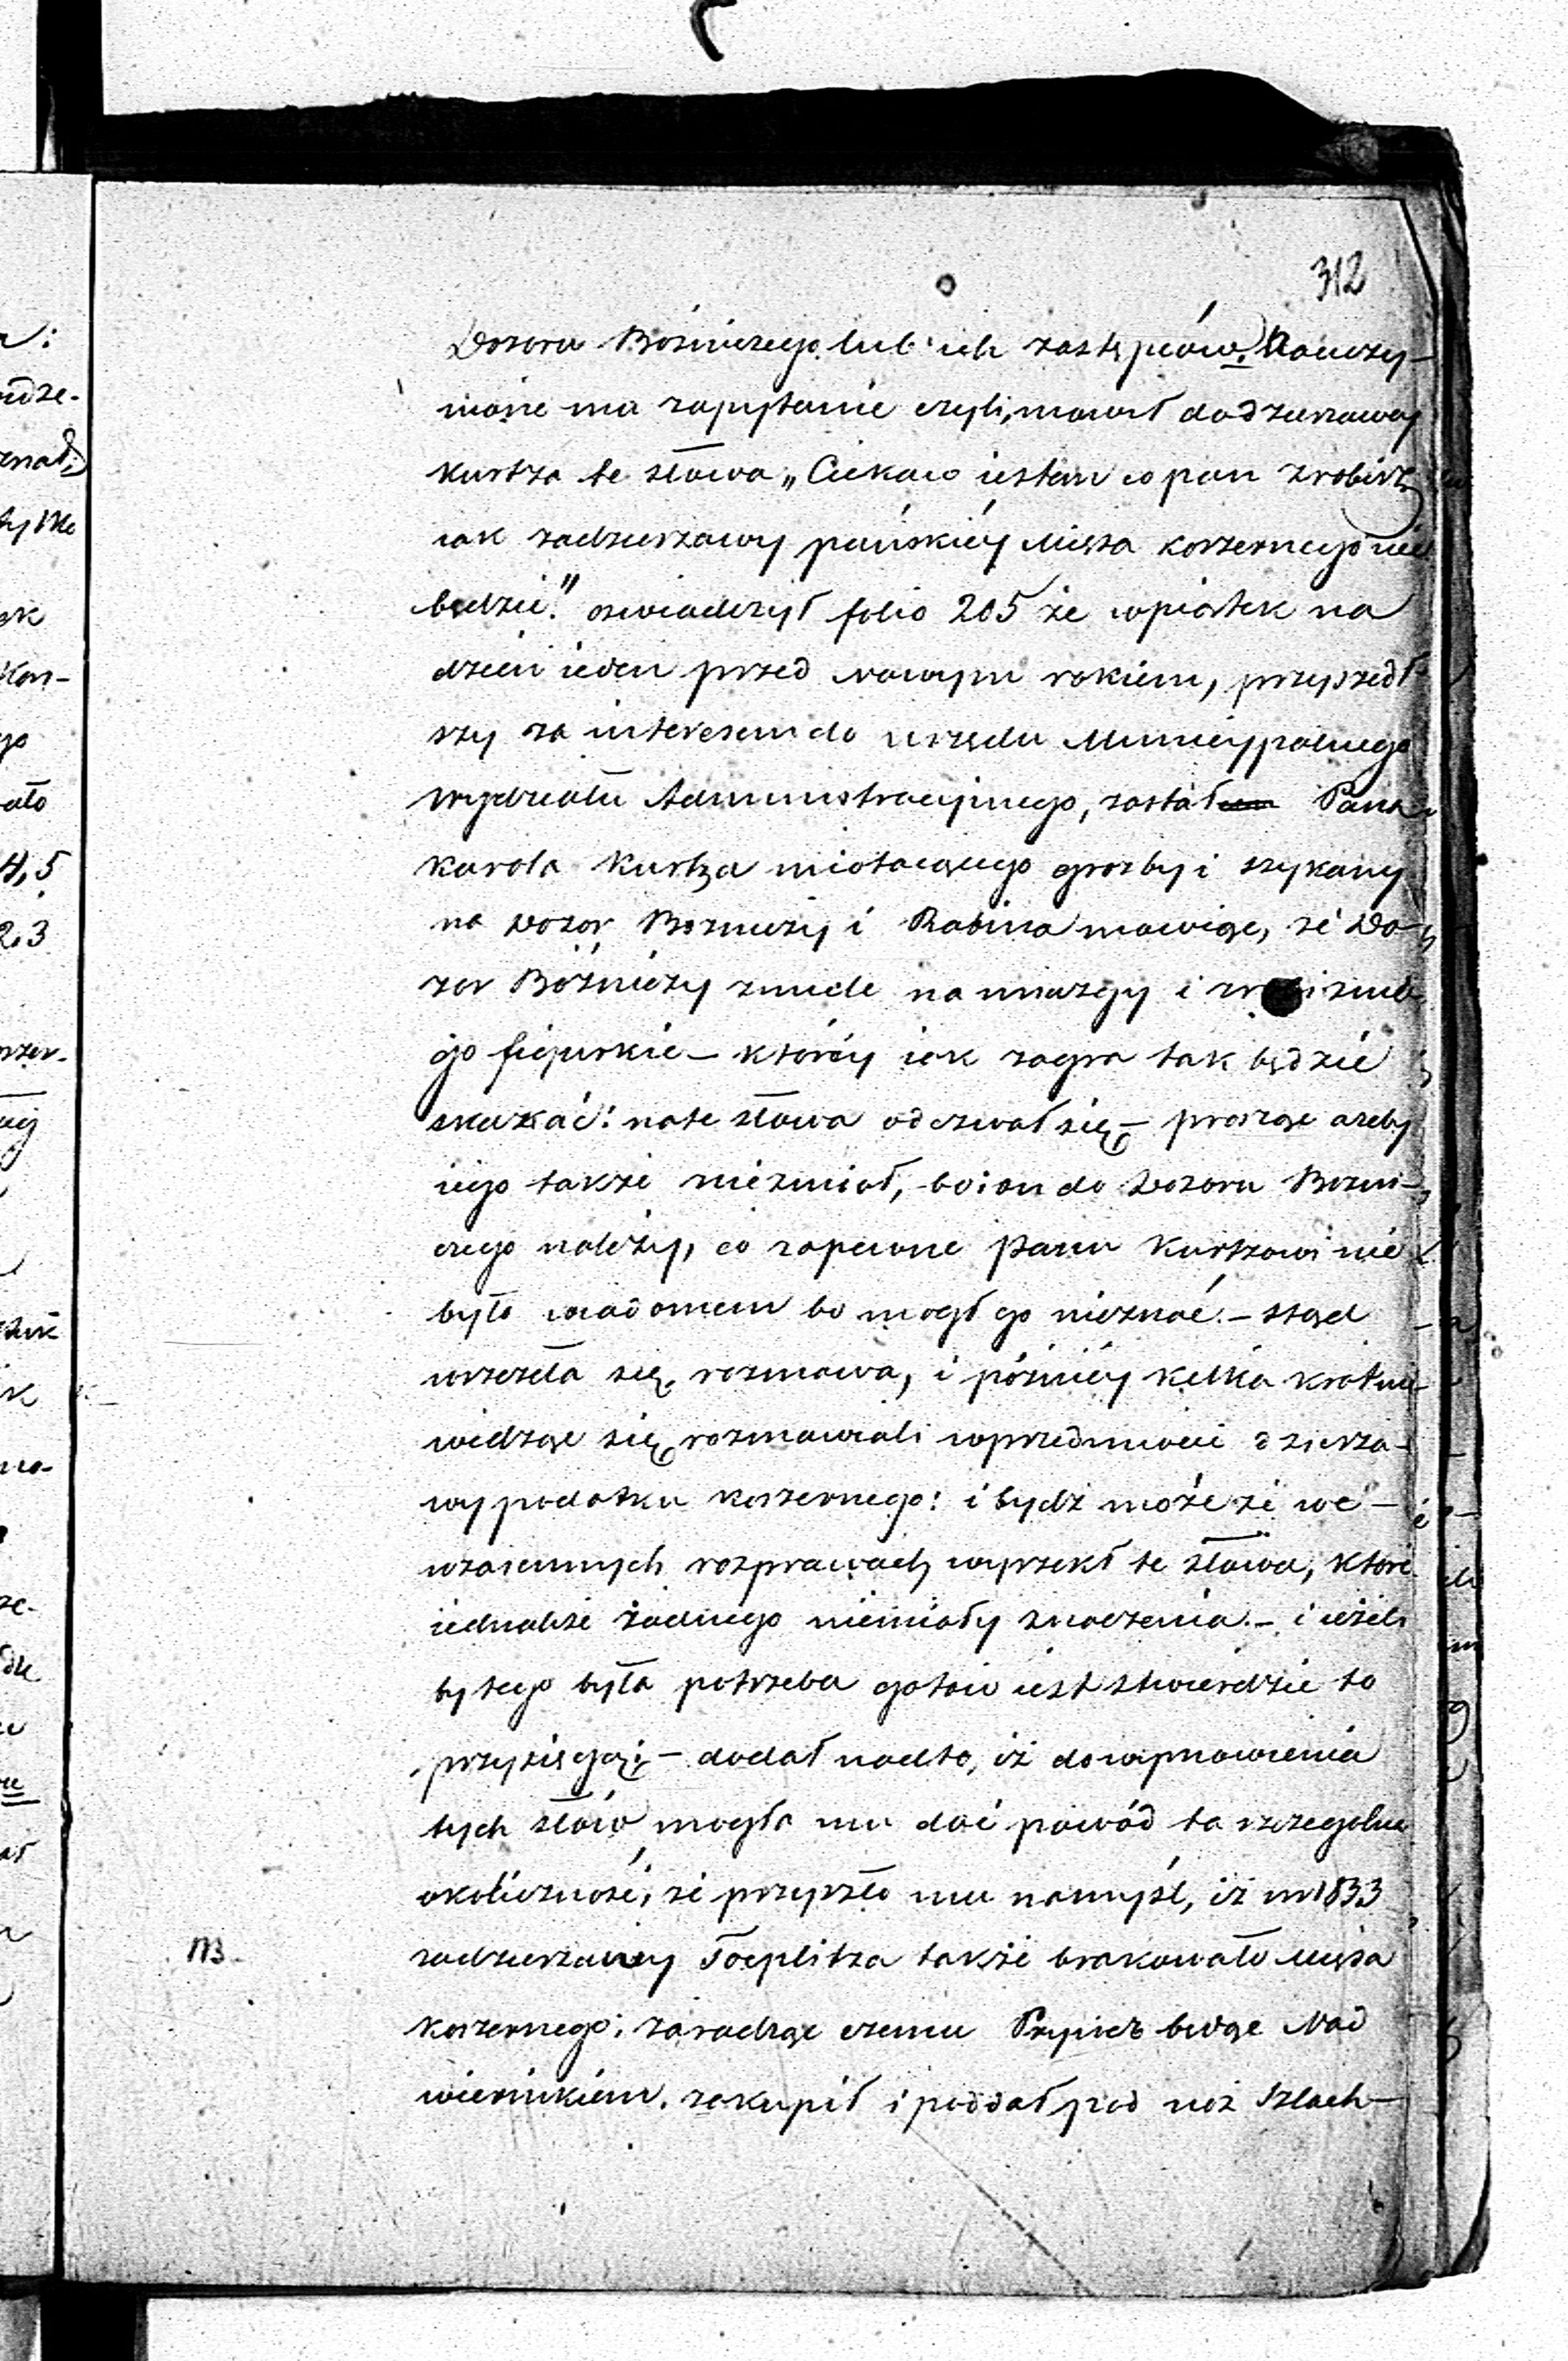 312
Dozoru Bożniczego lub ich zastępców. Nauczy-
nione mu zapytanie czyli, mowił do dzierzawcy
Kurtza te słowa „Ciekaw iestem co pan zrobisz
iak zadzierzawy pańskiéy Mięsa koszernego nie
będzie." oswiadczył folio 205 że wpiątek na
dzień ieden przed nowym rokiem, przyszedł-
szy za interesem do urzędu Municypalnego
wydziału Administracyjnego, zastał Pana
Karola Kurtza miotaiącego grozby i szykany
na Dozor Bozniczy i Rabina mowiąc, że Do-
zor Bóżniczy zmiele na miazgę i zrobi znie-
go figurkie – któréy iak zagra tak będzie
skakać: na te słowa odezwał się – prosząc azeby
iego także niezmioł, bo i on do Dozoru Bozni-
czego należy, co zapewne panu Kurtzowi nie
było wiadomem bo mogł go nieznać. – stąd
wszczęła się rozmowa, i późniéy kilka krotnie
widząc się, rozmawiali wprzedmiocie dzierza-
wy podatku koszernego: i bydź może że we –
wzaiemnych rozprawach wyrzekł te słowa, które
iednakże żadnego niemiały znaczenia. – i ieżeli
by tego była potrzeba gotów iest stwierdzić to
przysięgą; – dodał nadto, iż do wymowienia
tych słów mogła mu dać powód ta szczegolna
okoliczność, że przyszło mu namyśl, iż w r 1833
zadzierzawy Toeplitza także brakowało Mięsa
koszernego; zaradzając czemu będąc Nad
wiernikiem. zakupił i poddał pod noż Szlach-